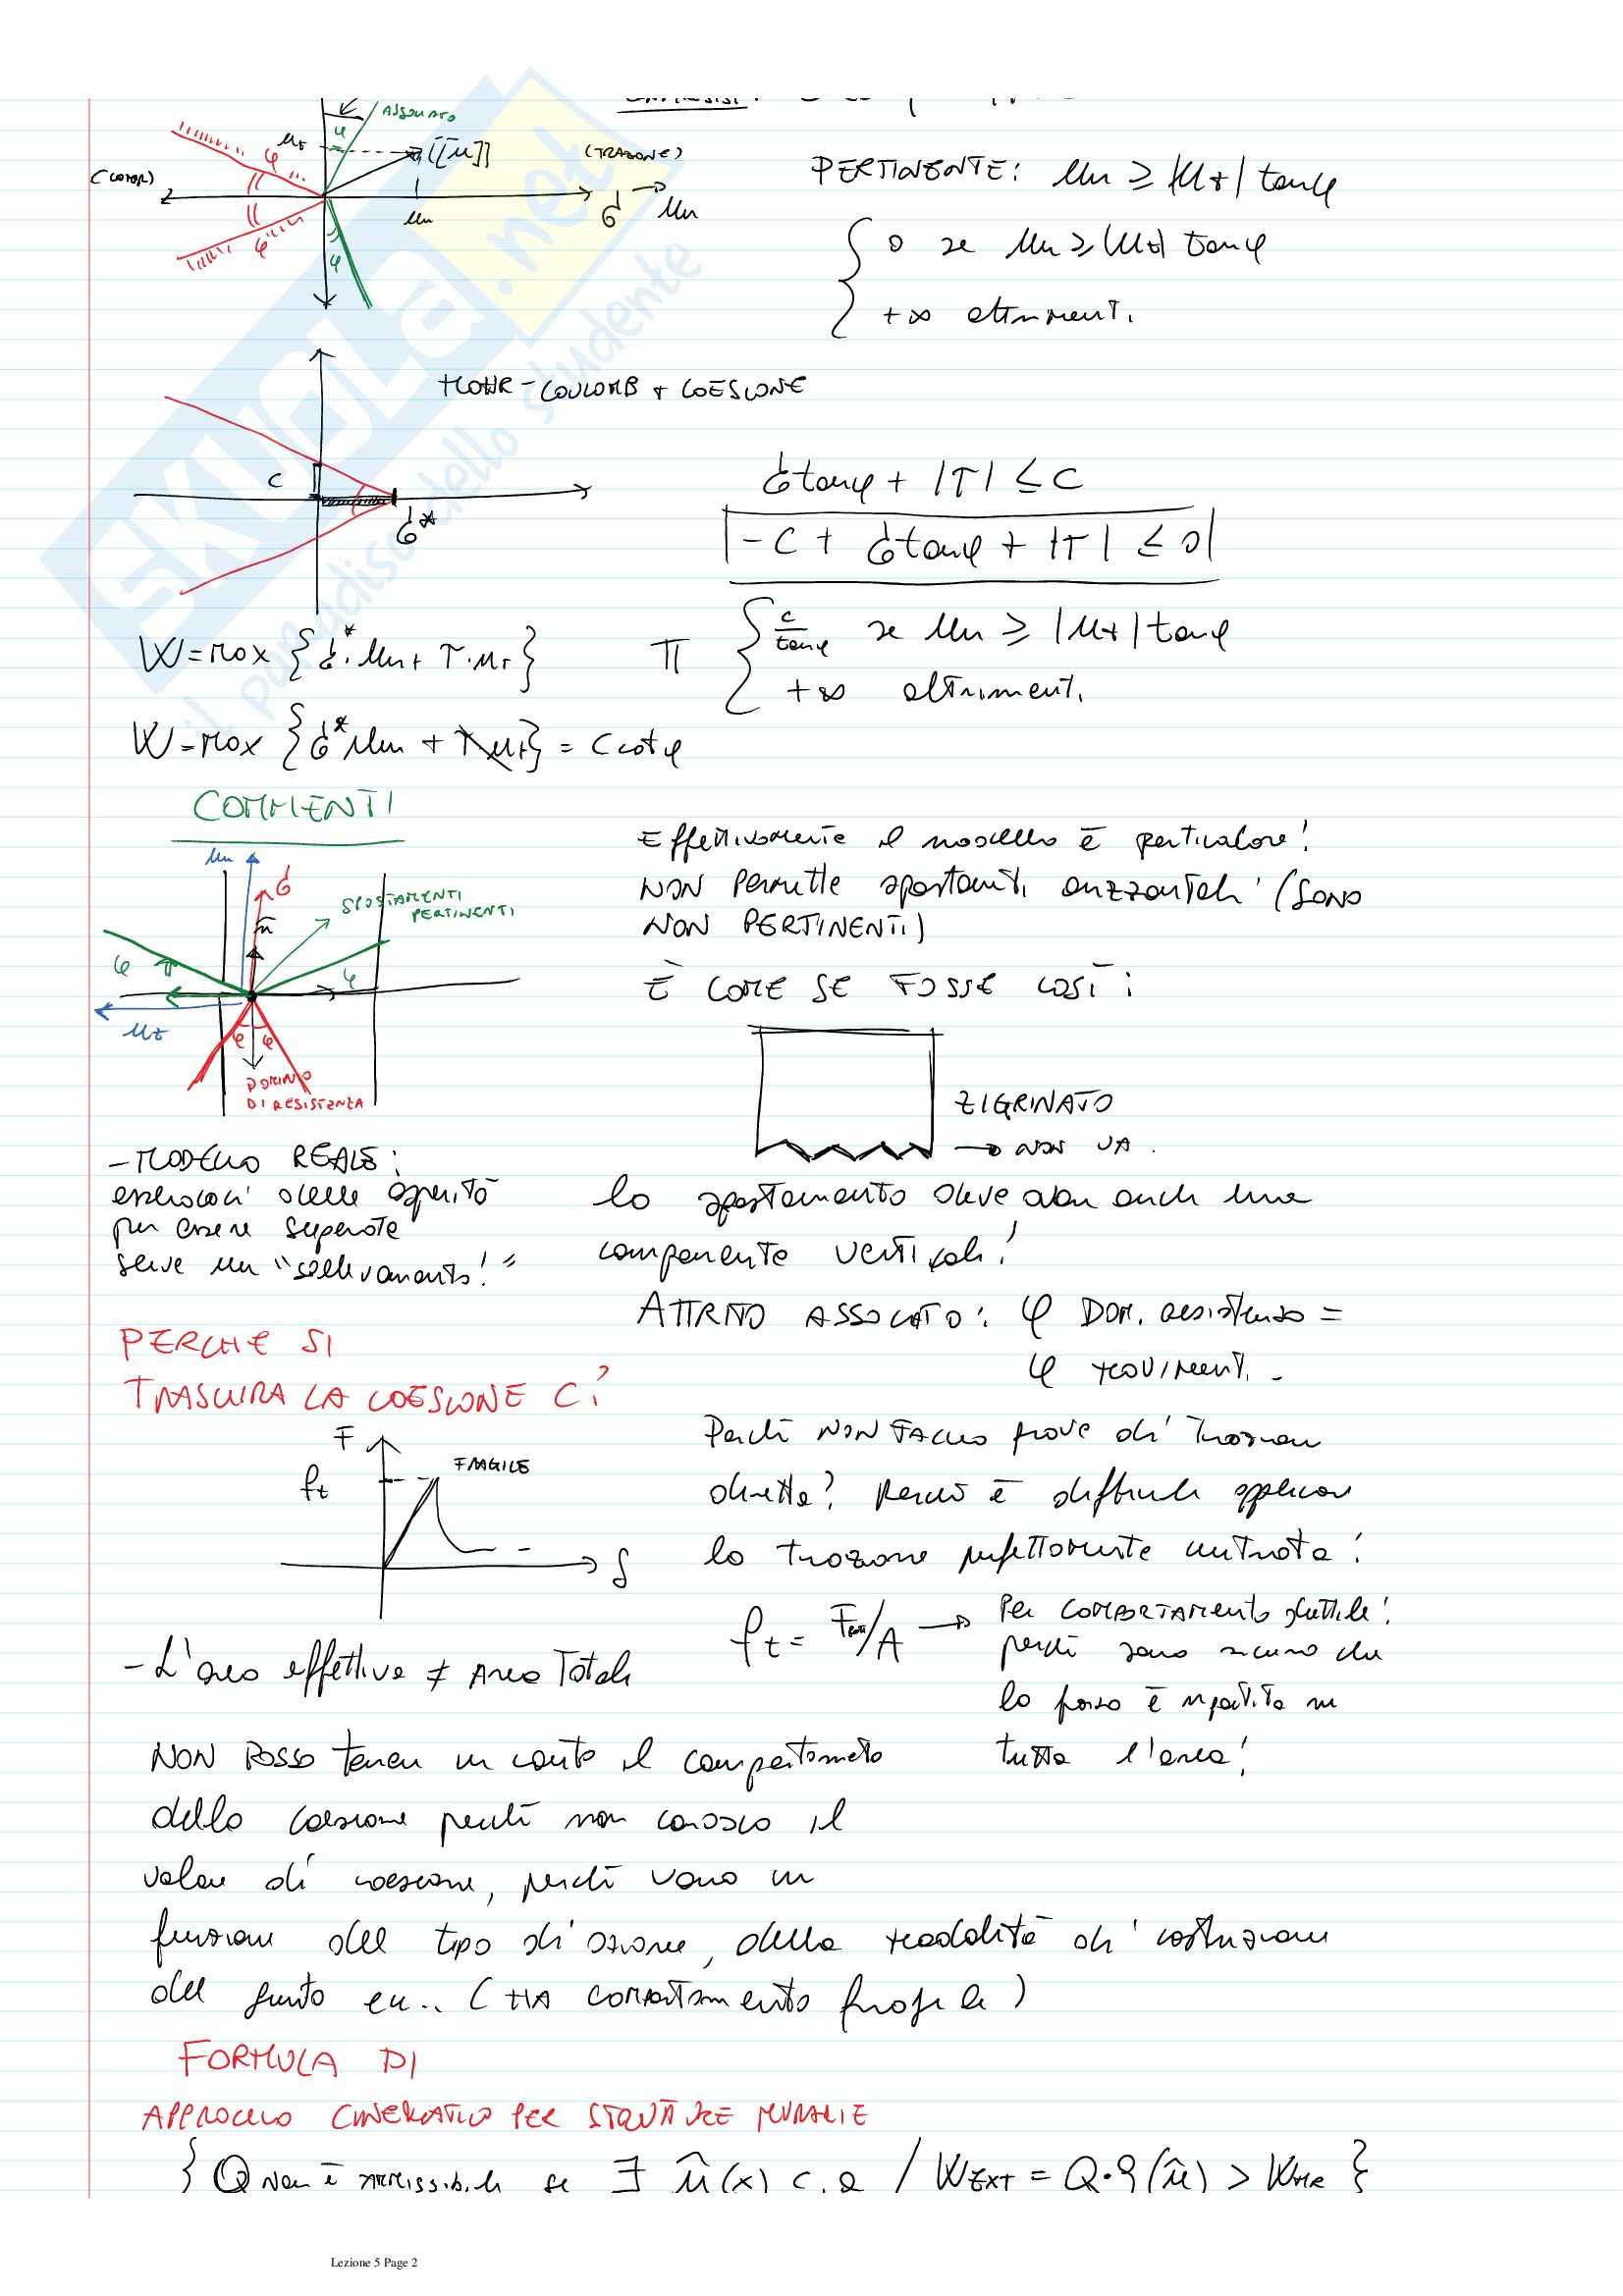 ASSOCIATO
(COMPR)
(TRAZIONE)
[[u]]
φ
φ
φ
φ
ut
un
σ → un
PERTINENTE: un ≥ |ut| tanφ
{ 0 se un ≥ |ut| tanφ
+∞ altrimenti.
MOHR-COULOMB + COESIONE
C
σ*
σtanφ + |τ| ≤ C
|-C + σtanφ + |τ| ≤ 0|
W=max {σ*·un+ τ·ut}
π { c/tanφ se un ≥ |ut| tanφ
+∞ altrimenti.
W=max {σ*un + τut} = C cotφ
COMMENTI
un
σ
n
SPOSTAMENTI
PERTINENTI
φ
φ
ut
φ φ
DOMINIO
DI RESISTENZA
Effettivamente il modello è particolare!
NON Permette spostamenti orizzontali (SONO
NON PERTINENTI)
È COME SE FOSSE COSÌ:
ZIGRINATO
→ NON VA.
-MODELLO REALE:
essendoci delle asperità
per essere superate
serve un "sollevamento!"
lo spostamento deve aver anche una
componente verticale!
ATTRITO ASSOCIATO: φ DOM. resistenza =
φ MOVIMENTI.
PERCHE SI
TRASCURA LA COESIONE C?
F
ft
FRAGILE
δ
Perché NON FACCIO prove di trazione
diretta? Perché è difficile applicare
la trazione perfettamente centrata!
ft = F/A → Per COMPORTAMENTO duttile!
perché sono sicuro che
la forza è ripartita in
tutta l'area!
- L'area effettiva ≠ Area Totale
NON POSSO tener in conto il comportamento
della coesione perché non conosco il
valore di coesione, perché varia in
funzione del tipo di azione, della modalità di costruzione
del giunto ecc.. (HA comportamento fragile)
FORMULA DI
APPROCCIO CINEMATICO PER STRUTTURE MURARIE
{ Q Non è ammissibile se ∃ û(x) c.a / WEXT = Q·q(û) > WMR }
Lezione 5 Page 2
SKUOLA.net
il paradiso dello studente